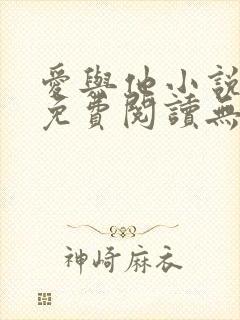 愛與他小說
免費閱讀無
神崎麻衣